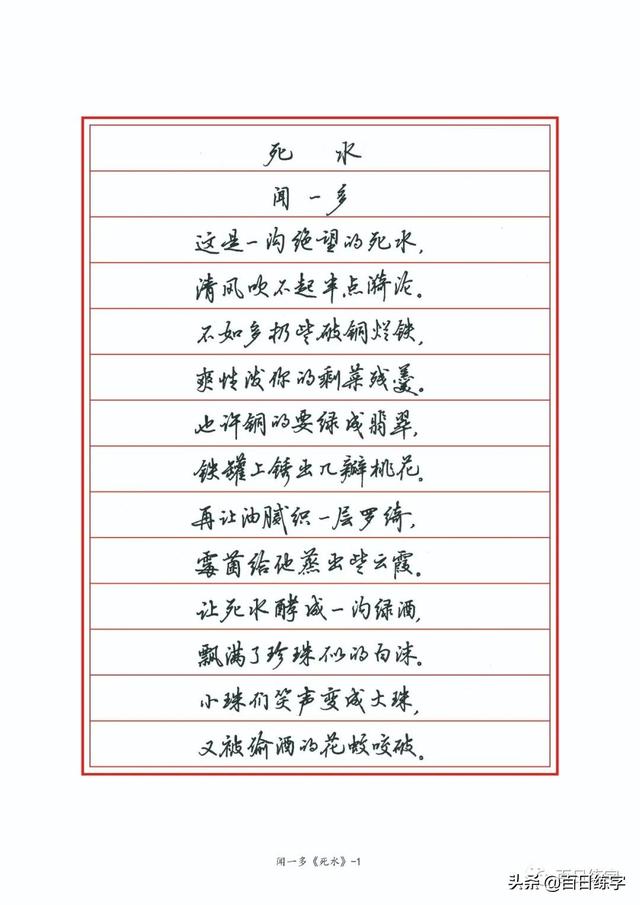 死 水
闻一多
这是一沟绝望的死水,
清风吹不起半点漪沦。
不如多扔些破铜烂铁,
爽性泼你的剩菜残羹。
也许铜的要绿成翡翠,
铁罐上锈出几瓣桃花。
再让油腻织一层罗绮,
霉菌给他蒸出些云霞。
让死水酵成一沟绿酒,
飘满了珍珠似的白沫。
小珠们笑声变成大珠,
又被偷酒的花蚊咬破。
闻一多《死水》-1
百日练字
头条 @百日练字